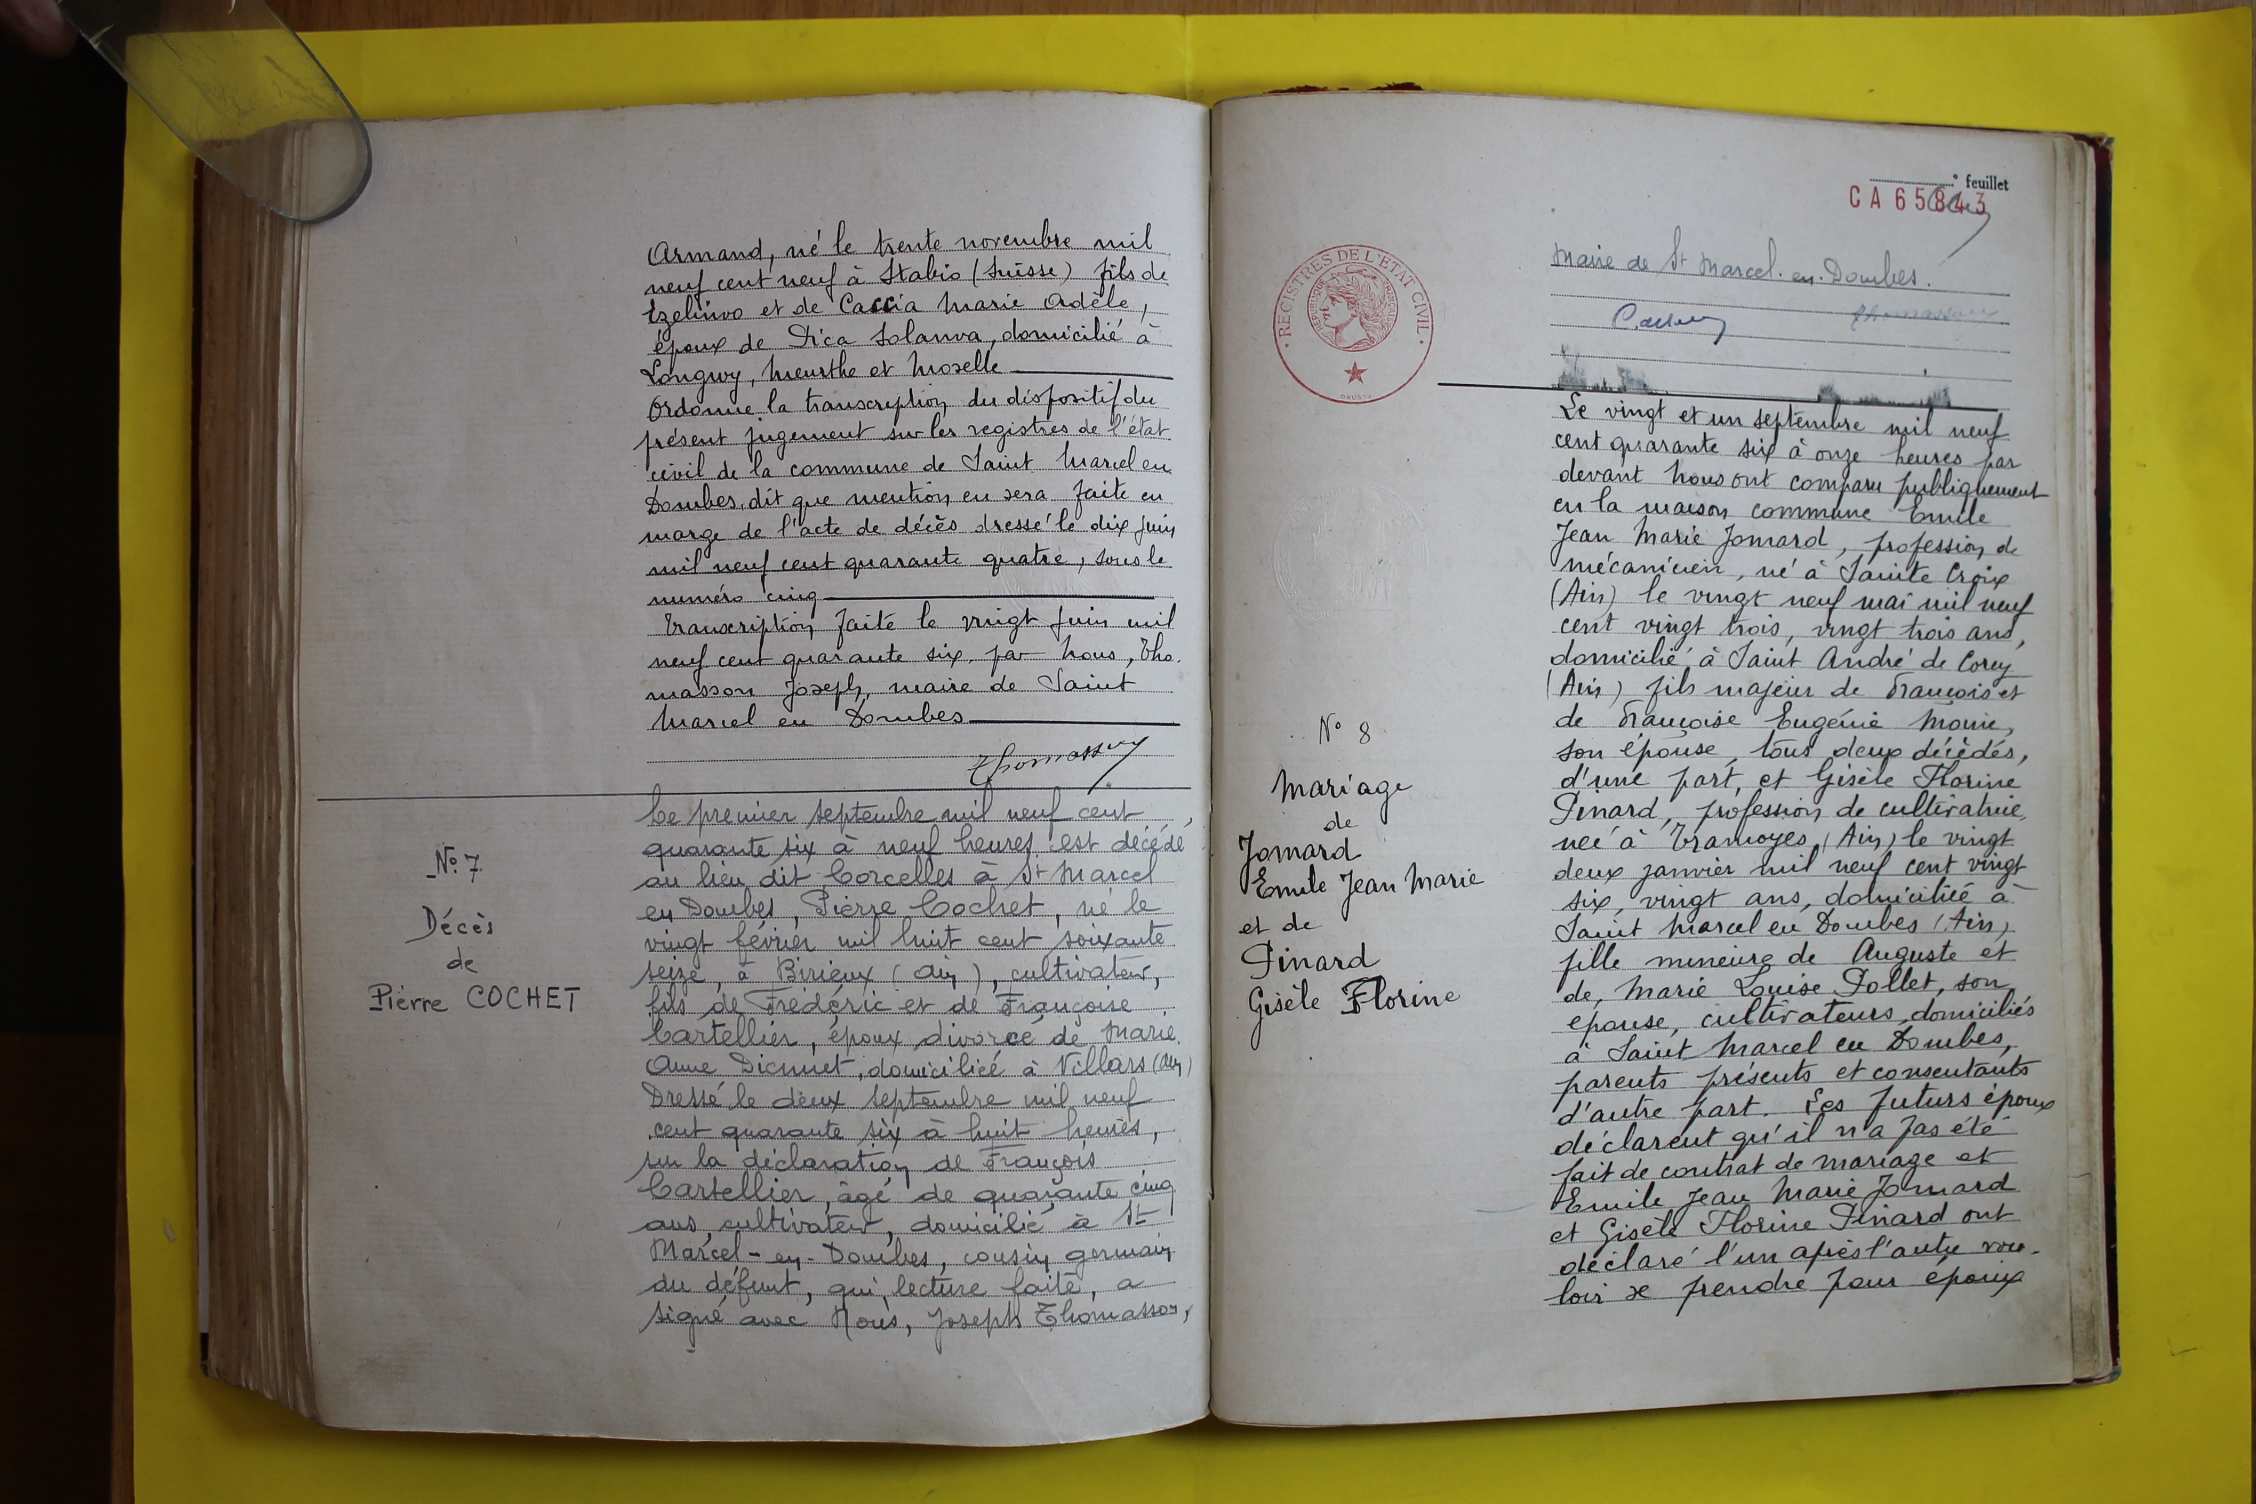 Armand, né le trente novembre mil
neuf cent neuf à Stabio (Suisse) fils de
Ezelinvo et de Caccia Marie Adèle,
époux de Pica Solanva, domicilié à
Longwy, Meurthe et Moselle
Ordonne la transcription du dispositif du
présent jugement sur les registres de l'état
civil de la commune de Saint Marcel en
Dombes, dit que mention en sera faite en
marge de l'acte de décès dressé le dix juin
mil neuf cent quarante quatre, sous le
numéro cinq
Transcription faite le vingt juin mil
neuf cent quarante six par Nous, Tho-
masson Joseph, maire de Saint
Marcel en Dombes
Thomasson
N° 7
Décès
de
Pierre COCHET
Le premier septembre mil neuf cent
quarante six à neuf heures est décédé
au lieu dit Corcelles à St Marcel
en Dombes, Pierre Cochet, né le
vingt février mil huit cent soixante
seize, à Birieux (Ain), cultivateur,
fils de Frédéric et de Françoise
Cartellier, époux divorcé de Marie
Anne Dionnet, domicilié à Villars (Ain)
Dressé le deux septembre mil neuf
cent quarante six à huit heures,
sur la déclaration de François
Cartellier, âgé de quarante cinq
ans, cultivateur, domicilié à St
Marcel-en-Dombes, cousin germain
du défunt, qui, lecture faite, a
signé avec Nous, Joseph Thomasson,
° feuillet
CA 65843
REGISTRES DE L'ETAT CIVIL
Maire de St Marcel-en-Dombes.
Thomasson
N° 8
Mariage
de
Jomard
Emile Jean Marie
et de
Pinard
Gisèle Florine
Le vingt et un septembre mil neuf
cent quarante six à onze heures par
devant Nous ont comparu publiquement
en la maison commune Emile
Jean Marie Jomard, profession de
mécanicien, né à Sainte Croix
(Ain) le vingt neuf mai mil neuf
cent vingt trois, vingt trois ans,
domicilié à Saint André de Corcy
(Ain) fils majeur de François et
de Françoise Eugénie Morin,
son épouse, tous deux décédés,
d'une part, et Gisèle Florine
Pinard, profession de cultivatrice,
née à Tramoyes (Ain) le vingt
deux janvier mil neuf cent vingt
six, vingt ans, domiciliée à
Saint Marcel en Dombes (Ain)
fille mineure de Auguste et
de, Marie Louise Pollet, son
épouse, cultivateurs, domiciliés
à Saint Marcel en Dombes,
parents présents et consentants
d'autre part. Les futurs époux
déclarent qu'il n'a pas été
fait de contrat de mariage et
Emile Jean Marie Jomard
et Gisèle Florine Pinard ont
déclaré l'un après l'autre vou-
loir se prendre pour époux